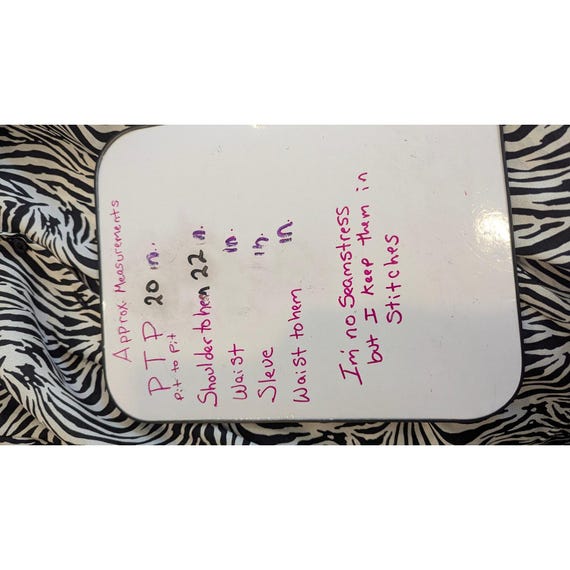 Approx. Measurements
PTP 20 in.
Pit to Pit
Shoulder to hem 22 in.
Waist in.
Sleve in.
Waist to hem in.
I'm no Seamstress
but I keep them in
Stitches